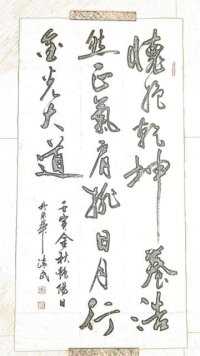 怀抱乾坤养浩
然正气肩挑日月行
金光大道
壬寅金秋艳阳日